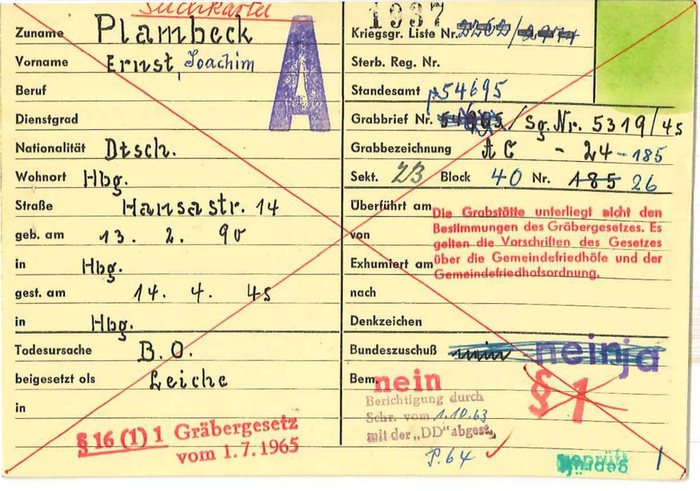 Suchkartei
1937
Zuname Plambeck
Vorname Ernst, Joachim
A
Beruf
Dienstgrad
Nationalität Dtsch.
Wohnort Hbg.
Straße Hansastr. 14
geb. am 13. 2. 90
in Hbg.
gest. am 14. 4. 45
in Hbg.
Todesursache B.O.
beigesetzt als Leiche
in
§ 16 (1) 1 Gräbergesetz
vom 1.7.1965
Kriegsgr. Liste Nr.
Sterb. Reg. Nr.
Standesamt
54695
Grabbrief Nr. / Sg. Nr. 5319/45
Grabbezeichnung AC - 24 - 185
Sekt. 23 Block 40 Nr. 185 26
Überführt am
von
Exhumiert am
nach
Die Grabstätte unterliegt nicht den
Bestimmungen des Gräbergesetzes. Es
gelten die Vorschriften des Gesetzes
über die Gemeindefriedhöfe und der
Gemeindefriedhofsordnung.
Denkzeichen
Bundeszuschuß nein nein ja
Bem.
nein
§ 1
Berichtigung durch
Schr. vom 1.10.63
mit der „DD" abgest.
P. 64
geprüft